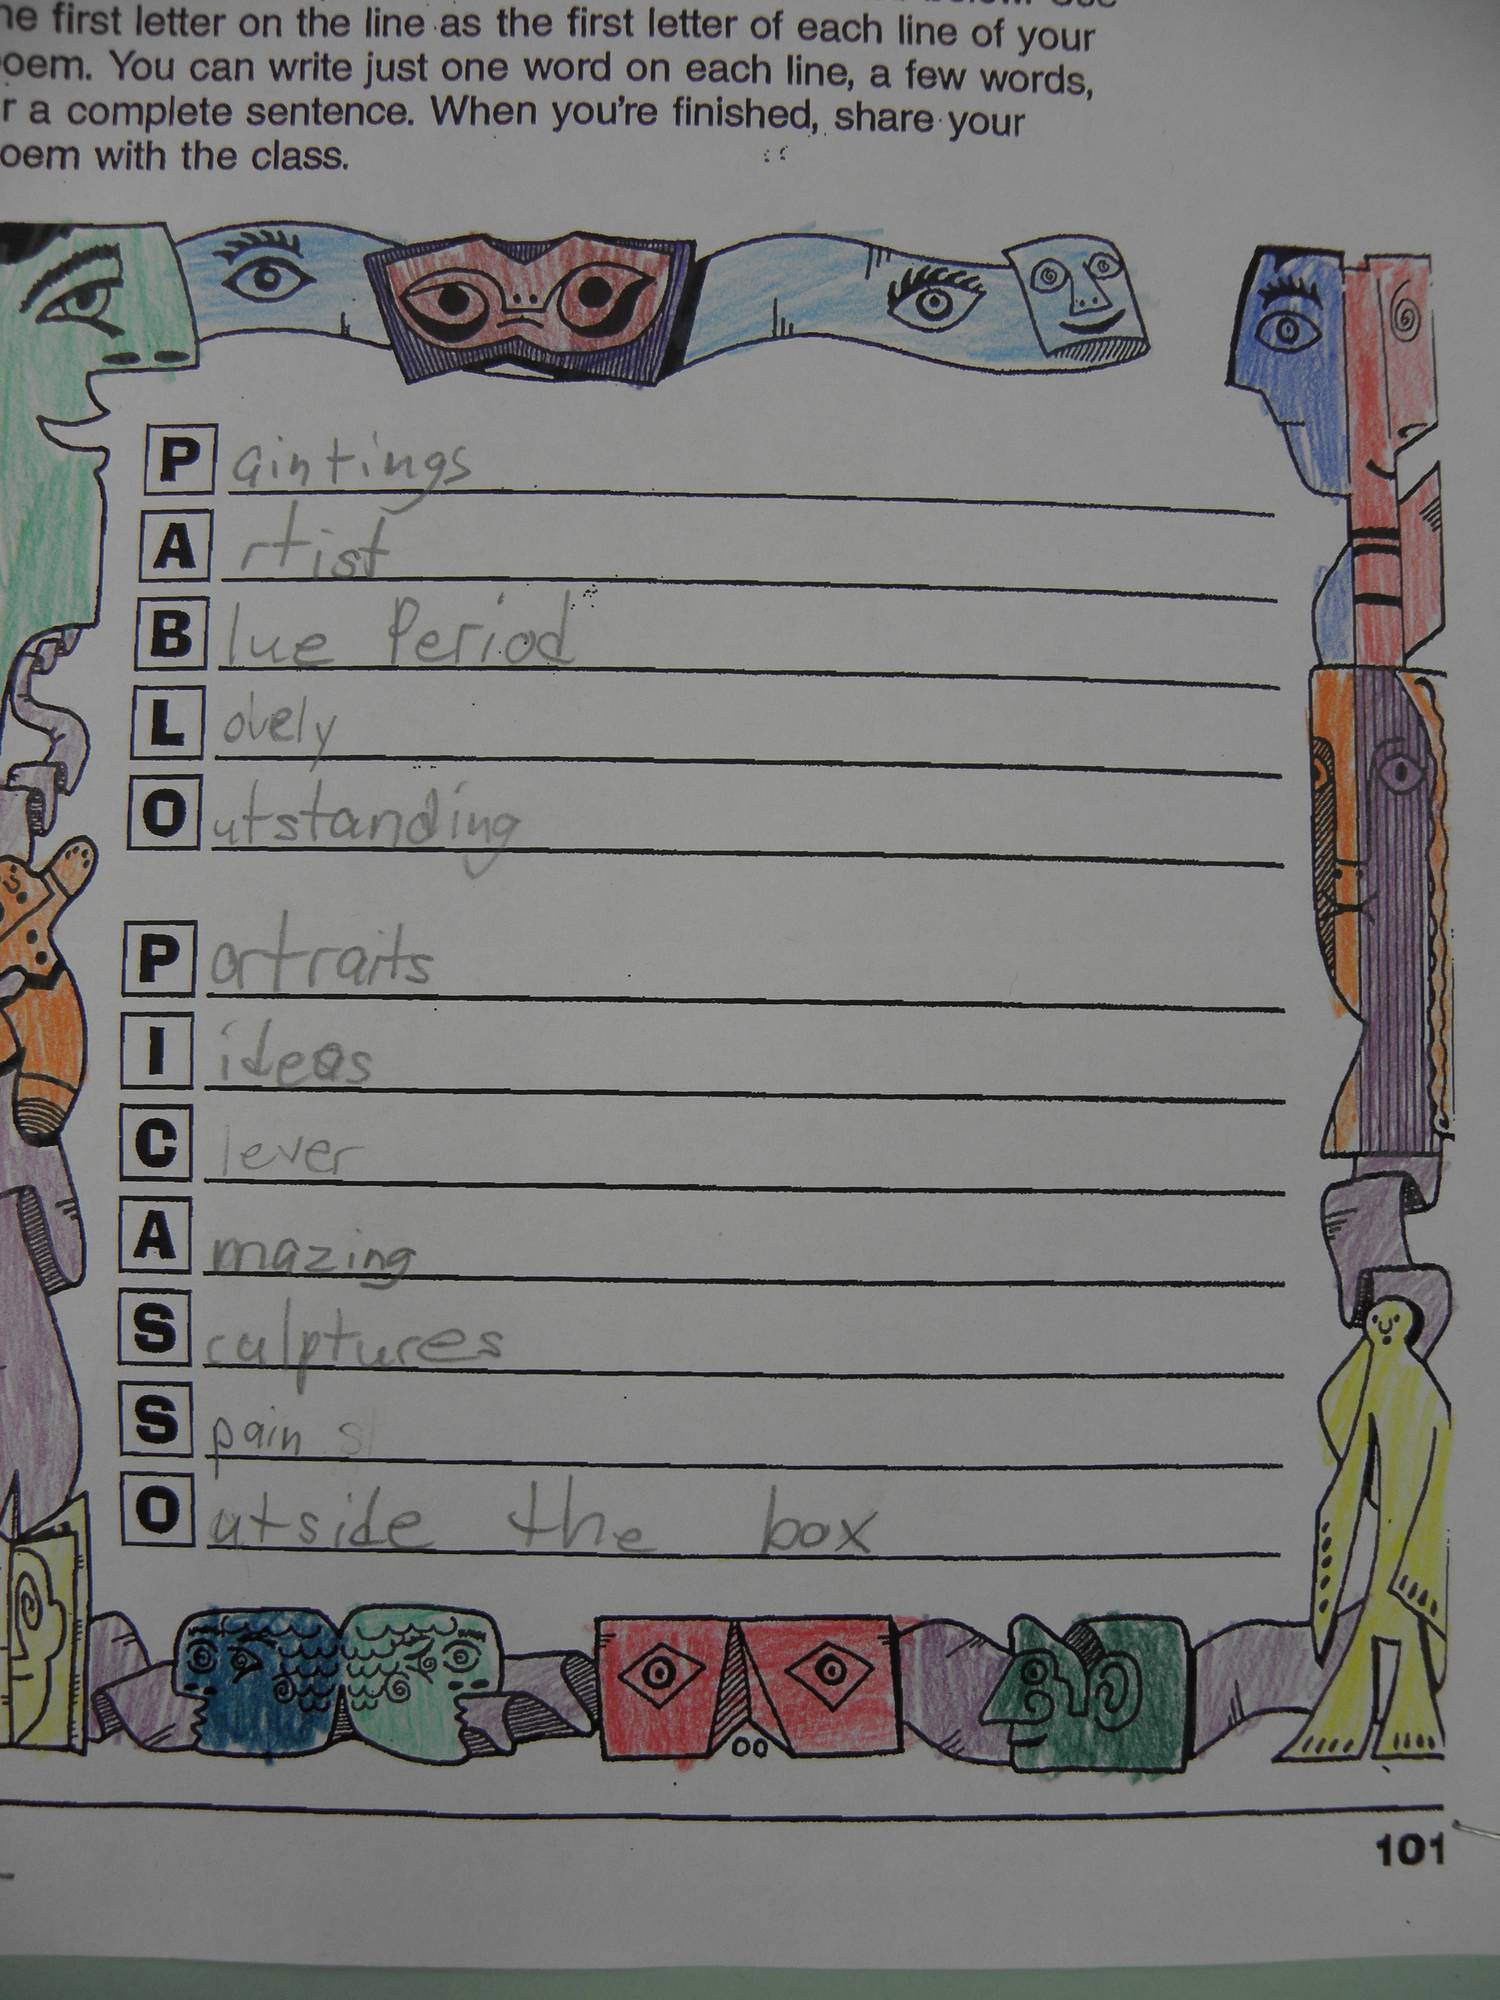 he first letter on the line as the first letter of each line of your
oem. You can write just one word on each line, a few words,
r a complete sentence. When you're finished, share your
oem with the class.
Paintings
Artist
Blue Period
Lovely
Outstanding
Portraits
Iideas
Clever
Amazing
Sculptures
Spain
Outside the box
101